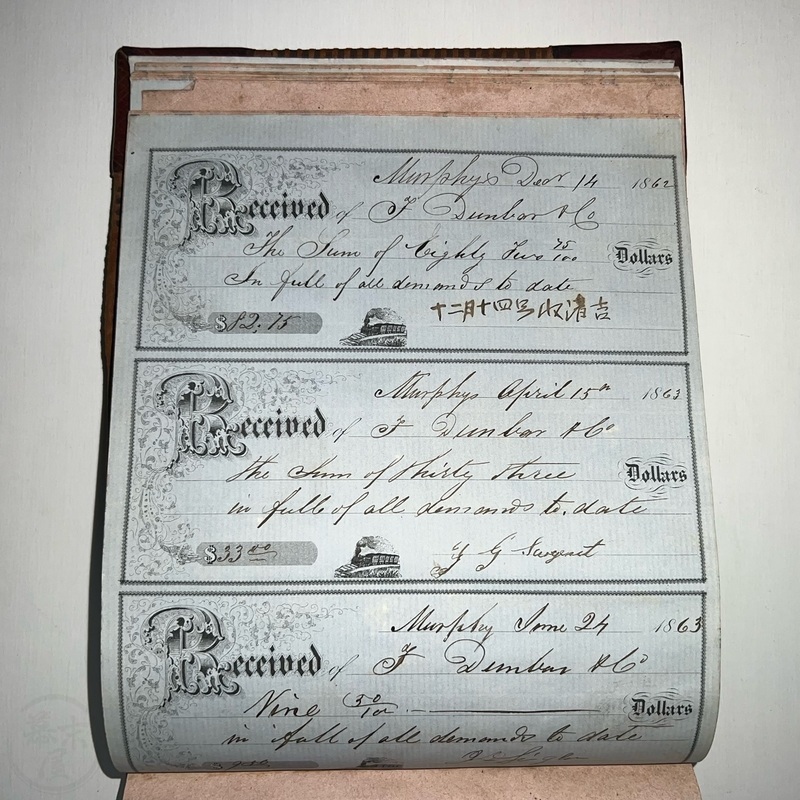 Murphys Decr 14 1862
Received of F Dunbar & Co
The Sum of Eighty Two 75/100 Dollars
In full of all demands to date
十二月十四号收清吉
$82.75
Murphys April 15th 1863
Received of F Dunbar & Co
the Sum of thirty three Dollars
in full of all demands to date
$33.00
G Sargent
Murphy June 24 1863
Received of F Dunbar & Co
Nine 50/100 Dollars
in full of all demands to date